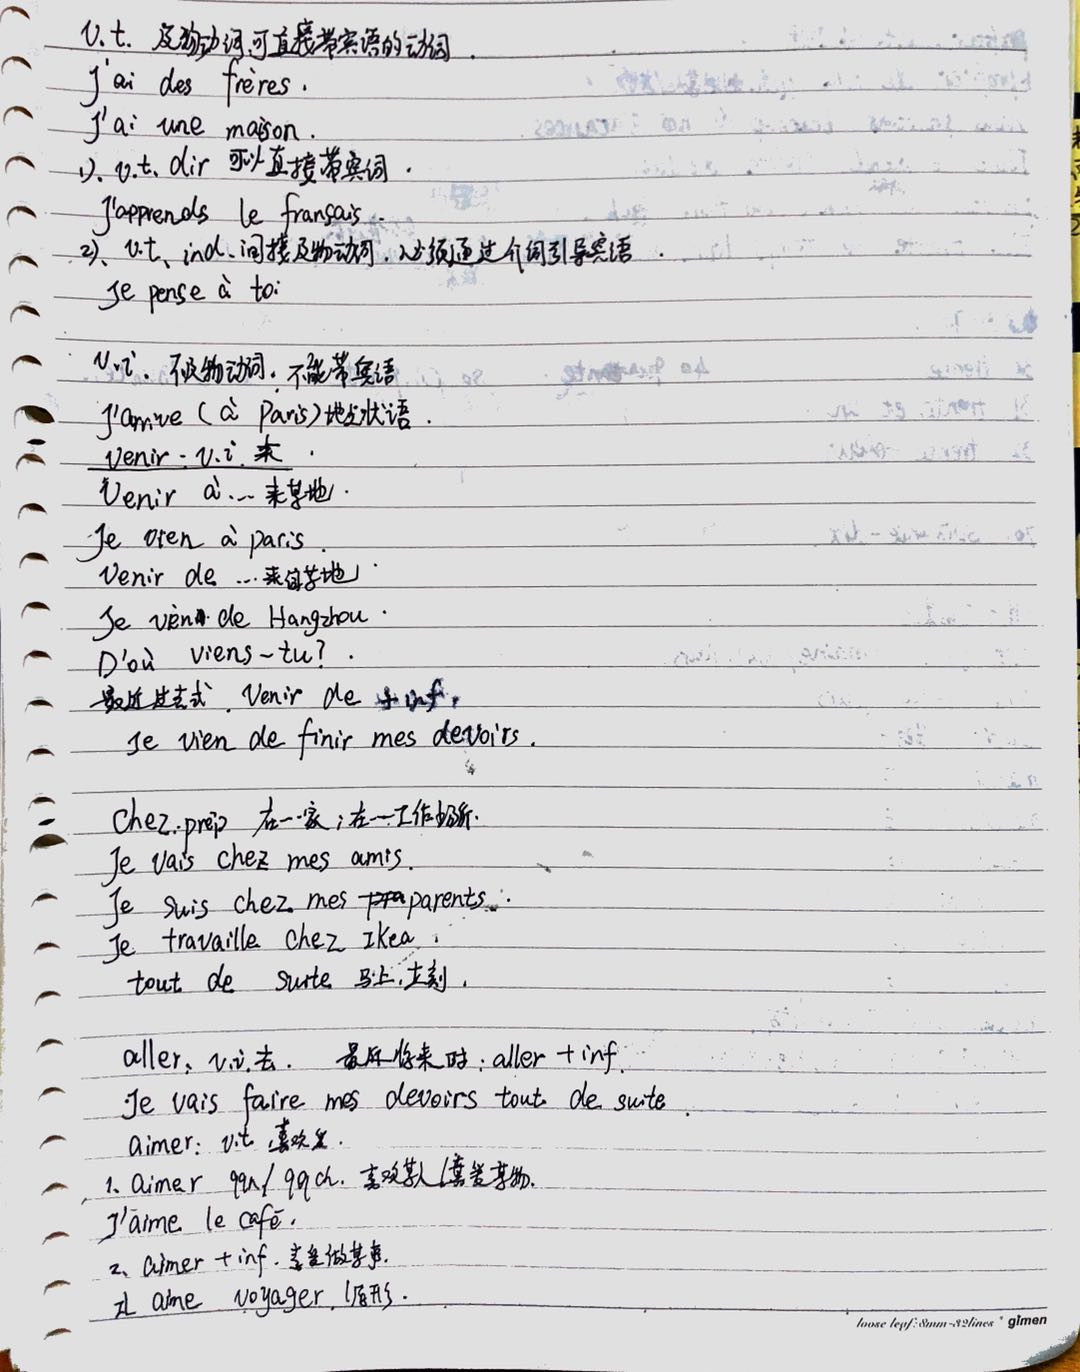 v.t. 及物动词,可直接带宾语的动词.
J'ai des frères.
J'ai une maison.
1)、v.t. dir 可以直接带宾词.
J'apprends le français.
2)、v.t. ind. 间接及物动词,必须通过介词引导宾语.
Je pense à toi
v.i. 不及物动词. 不能带宾语
J'arrive (à Paris)地点状语.
venir. v.i. 来.
Venir à... 来某地.
Je vien à paris.
Venir de ...来自某地.
Je vien de Hangzhou.
D'où viens-tu?.
最近过去式. Venir de + inf.
Je vien de finir mes devoirs.
Chez. prép 在…家;在…工作场所.
Je vais chez mes amis.
Je suis chez mes parents.
Je travaille chez Ikea.
tout de suite 马上.立刻.
aller. v.i. 去. 最近将来时: aller + inf.
Je vais faire mes devoirs tout de suite.
aimer: v.t. 喜欢爱.
1. aimer qqn/ qqch. 喜欢某人/喜爱某物.
J'aime le café.
2、aimer + inf. 喜爱做某事.
Il aime voyager. 原形.
loose leaf: 8mm-32lines * gimen